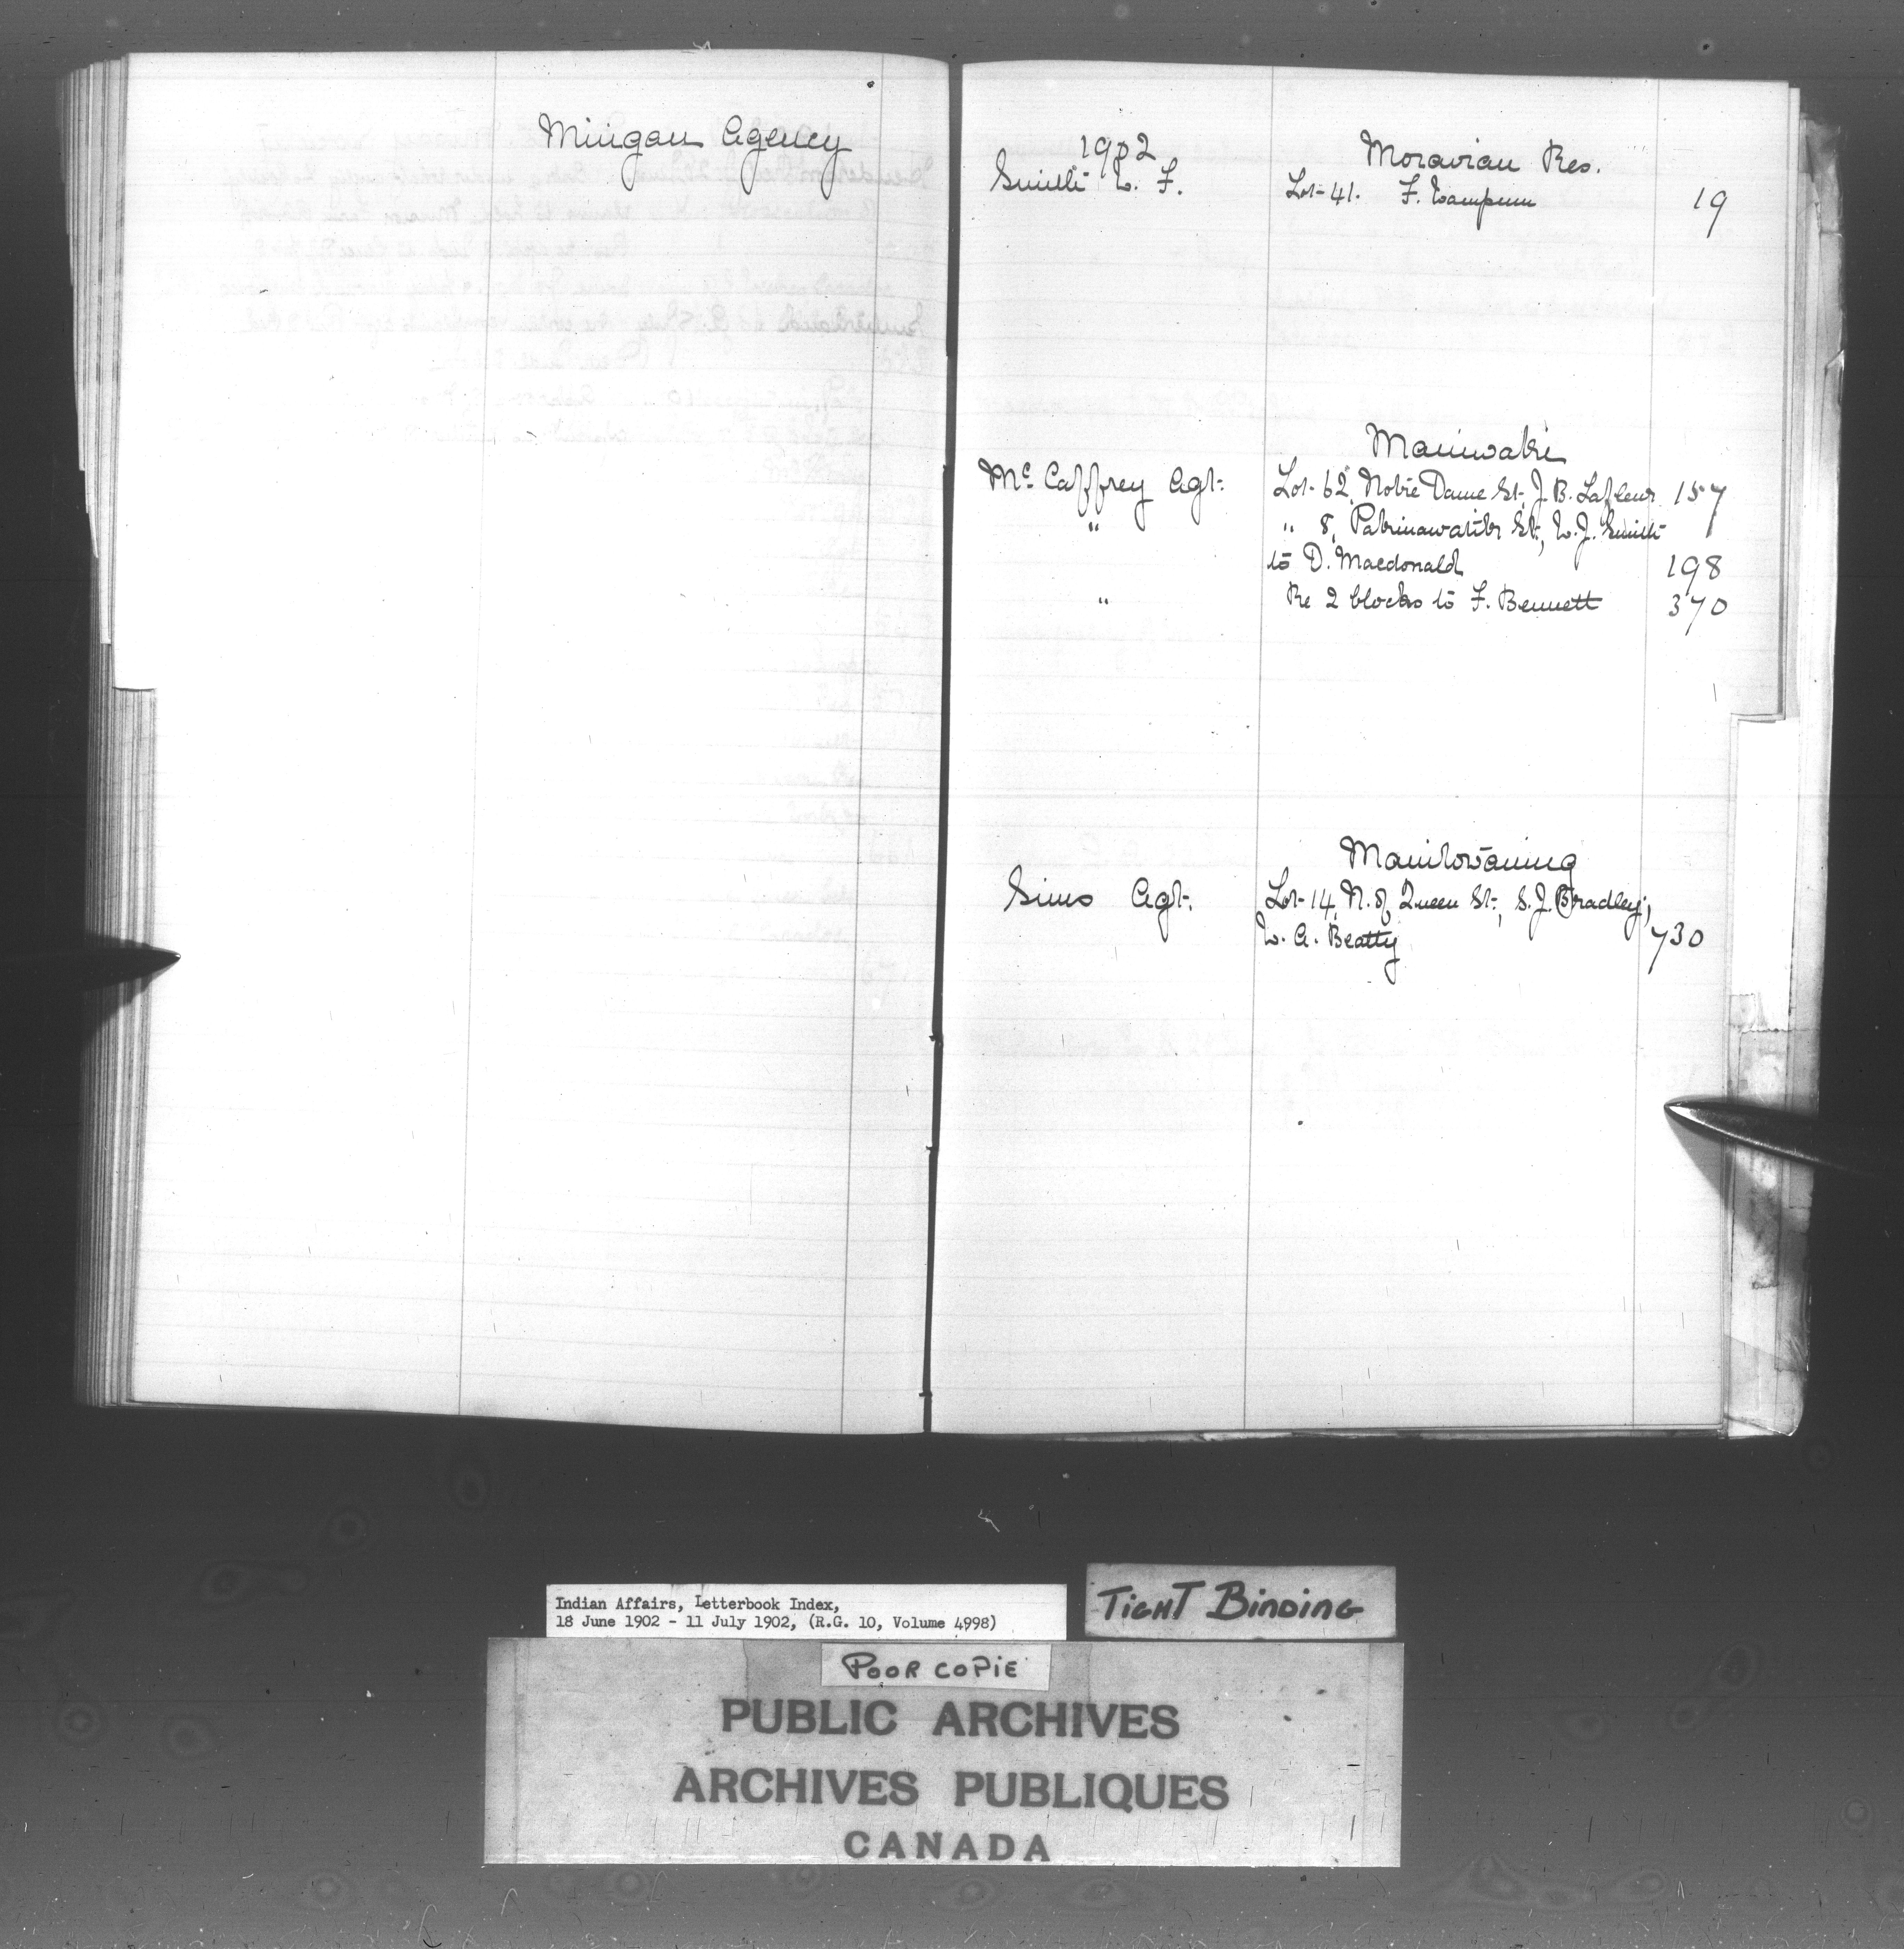 Mingan Agency
1902
Moravian Res.
Smith W. F.
Lot 41. F. Wampum 19
Maniwaki
Mc. Caffrey Agt.
Lot 62, Notre Dame St, J. B. Lafleur 157
" " 8, St, W. J. Smith
to D. Macdonald 198
" Re 2 blocks to F. Bennett 370
Manitowaning
Sims Agt.
Lot 14, N. of Queen St, S. J. Bradley,
W. A. Beatty 730
Indian Affairs, Letterbook Index,
18 June 1902 - 11 July 1902, (R.G. 10, Volume 4998)
TIGHT BINDING
POOR COPIE
PUBLIC ARCHIVES
ARCHIVES PUBLIQUES
CANADA